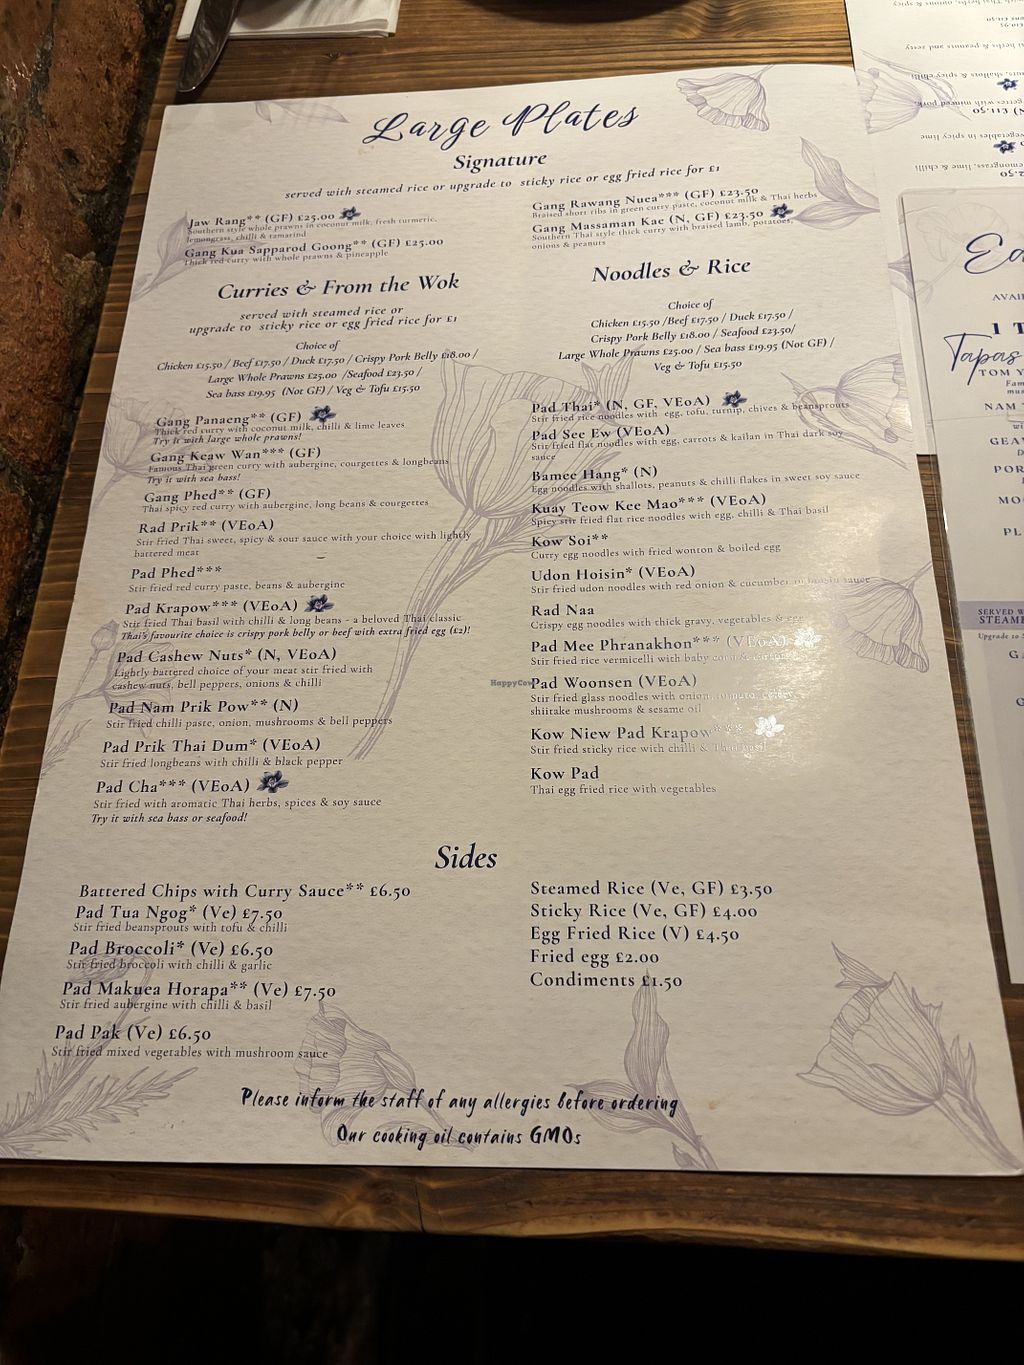 Large Plates
Signature
served with steamed rice or upgrade to sticky rice or egg fried rice for £1
Jaw Rang** (GF) £25.00
Southern style whole prawns in coconut milk, fresh turmeric,
lemongrass, chilli & tamarind
Gang Kua Sapparod Goong** (GF) £25.00
Thick red curry with whole prawns & pineapple
Gang Rawang Nuea*** (GF) £23.50
Braised short ribs in green curry paste, coconut milk & Thai herbs
Gang Massaman Kae (N, GF) £23.50
Southern Thai style thick curry with braised lamb, potatoes,
onions & peanuts
Curries & From the Wok
served with steamed rice or
upgrade to sticky rice or egg fried rice for £1
Choice of
Chicken £15.50 / Beef £17.50 / Duck £17.50 / Crispy Pork Belly £18.00 /
Large Whole Prawns £25.00 /Seafood £23.50 /
Sea bass £19.95 (Not GF) / Veg & Tofu £15.50
Gang Panaeng** (GF)
Thick red curry with coconut milk, chilli & lime leaves
Try it with large whole prawns!
Gang Keaw Wan*** (GF)
Famous Thai green curry with aubergine, courgettes & longbeans
Try it with sea bass!
Gang Phed** (GF)
Thai spicy red curry with aubergine, long beans & courgettes
Rad Prik** (VEoA)
Stir fried Thai sweet, spicy & sour sauce with your choice with lightly
battered meat
Pad Phed***
Stir fried red curry paste, beans & aubergine
Pad Krapow*** (VEoA)
Stir fried Thai basil with chilli & long beans - a beloved Thai classic
Thai's favourite choice is crispy pork belly or beef with extra fried egg (£2)!
Pad Cashew Nuts* (N, VEoA)
Lightly battered choice of your meat stir fried with
cashew nuts, bell peppers, onions & chilli
Pad Nam Prik Pow** (N)
Stir fried chilli paste, onion, mushrooms & bell peppers
Pad Prik Thai Dum* (VEoA)
Stir fried longbeans with chilli & black pepper
Pad Cha*** (VEoA)
Stir fried with aromatic Thai herbs, spices & soy sauce
Try it with sea bass or seafood!
Noodles & Rice
Choice of
Chicken £15.50 /Beef £17.50 / Duck £17.50 /
Crispy Pork Belly £18.00 / Seafood £23.50/
Large Whole Prawns £25.00 / Sea bass £19.95 (Not GF) /
Veg & Tofu £15.50
Pad Thai* (N, GF, VEoA)
Stir fried rice noodles with egg, tofu, turnip, chives & beansprouts
Pad See Ew (VEoA)
Stir fried flat noodles with egg, carrots & kailan in Thai dark soy
sauce
Bamee Hang* (N)
Egg noodles with shallots, peanuts & chilli flakes in sweet soy sauce
Kuay Teow Kee Mao*** (VEoA)
Spicy stir fried flat rice noodles with egg, chilli & Thai basil
Kow Soi**
Curry egg noodles with fried wonton & boiled egg
Udon Hoisin* (VEoA)
Stir fried udon noodles with red onion & cucumber in hoisin sauce
Rad Naa
Crispy egg noodles with thick gravy, vegetables & egg
Pad Mee Phranakhon*** (VEoA)
Stir fried rice vermicelli with baby corn & carrots
HappyCow
Pad Woonsen (VEoA)
Stir fried glass noodles with onion, tomato, celery,
shiitake mushrooms & sesame oil
Kow Niew Pad Krapow***
Stir fried sticky rice with chilli & Thai basil
Kow Pad
Thai egg fried rice with vegetables
Sides
Battered Chips with Curry Sauce** £6.50
Pad Tua Ngog* (Ve) £7.50
Stir fried beansprouts with tofu & chilli
Pad Broccoli* (Ve) £6.50
Stir fried broccoli with chilli & garlic
Pad Makuea Horapa** (Ve) £7.50
Stir fried aubergine with chilli & basil
Pad Pak (Ve) £6.50
Stir fried mixed vegetables with mushroom sauce
Steamed Rice (Ve, GF) £3.50
Sticky Rice (Ve, GF) £4.00
Egg Fried Rice (V) £4.50
Fried egg £2.00
Condiments £1.50
Please inform the staff of any allergies before ordering
Our cooking oil contains GMOs
Tapas
TOM Y
NAM
GEA
POR
MO
PL
SERVED W
STEAME